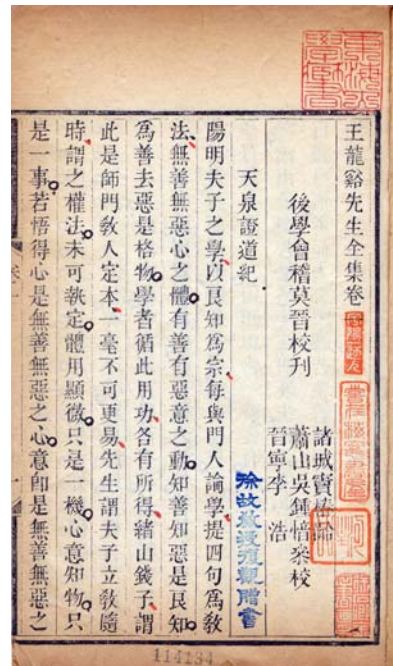 王龍谿先生全集卷
後學會稽莫晉校刊
諸城竇
蕭山吳鍾
校
晉寧李浩
天泉證道紀
徐故教授復觀贈書
陽明夫子之學以良知爲宗每與門人論學提四句爲教
法無善無惡心之體有善有惡意之動知善知惡是良知
爲善去惡是格物學者循此用功各有所得緒山錢子謂
此是師門教人定本一毫不可更易先生謂夫子立教隨
時謂之權法未可執定體用顯微只是一機心意知物只
是一事若悟得心是無善無惡之心意卽是無善無惡之
114134